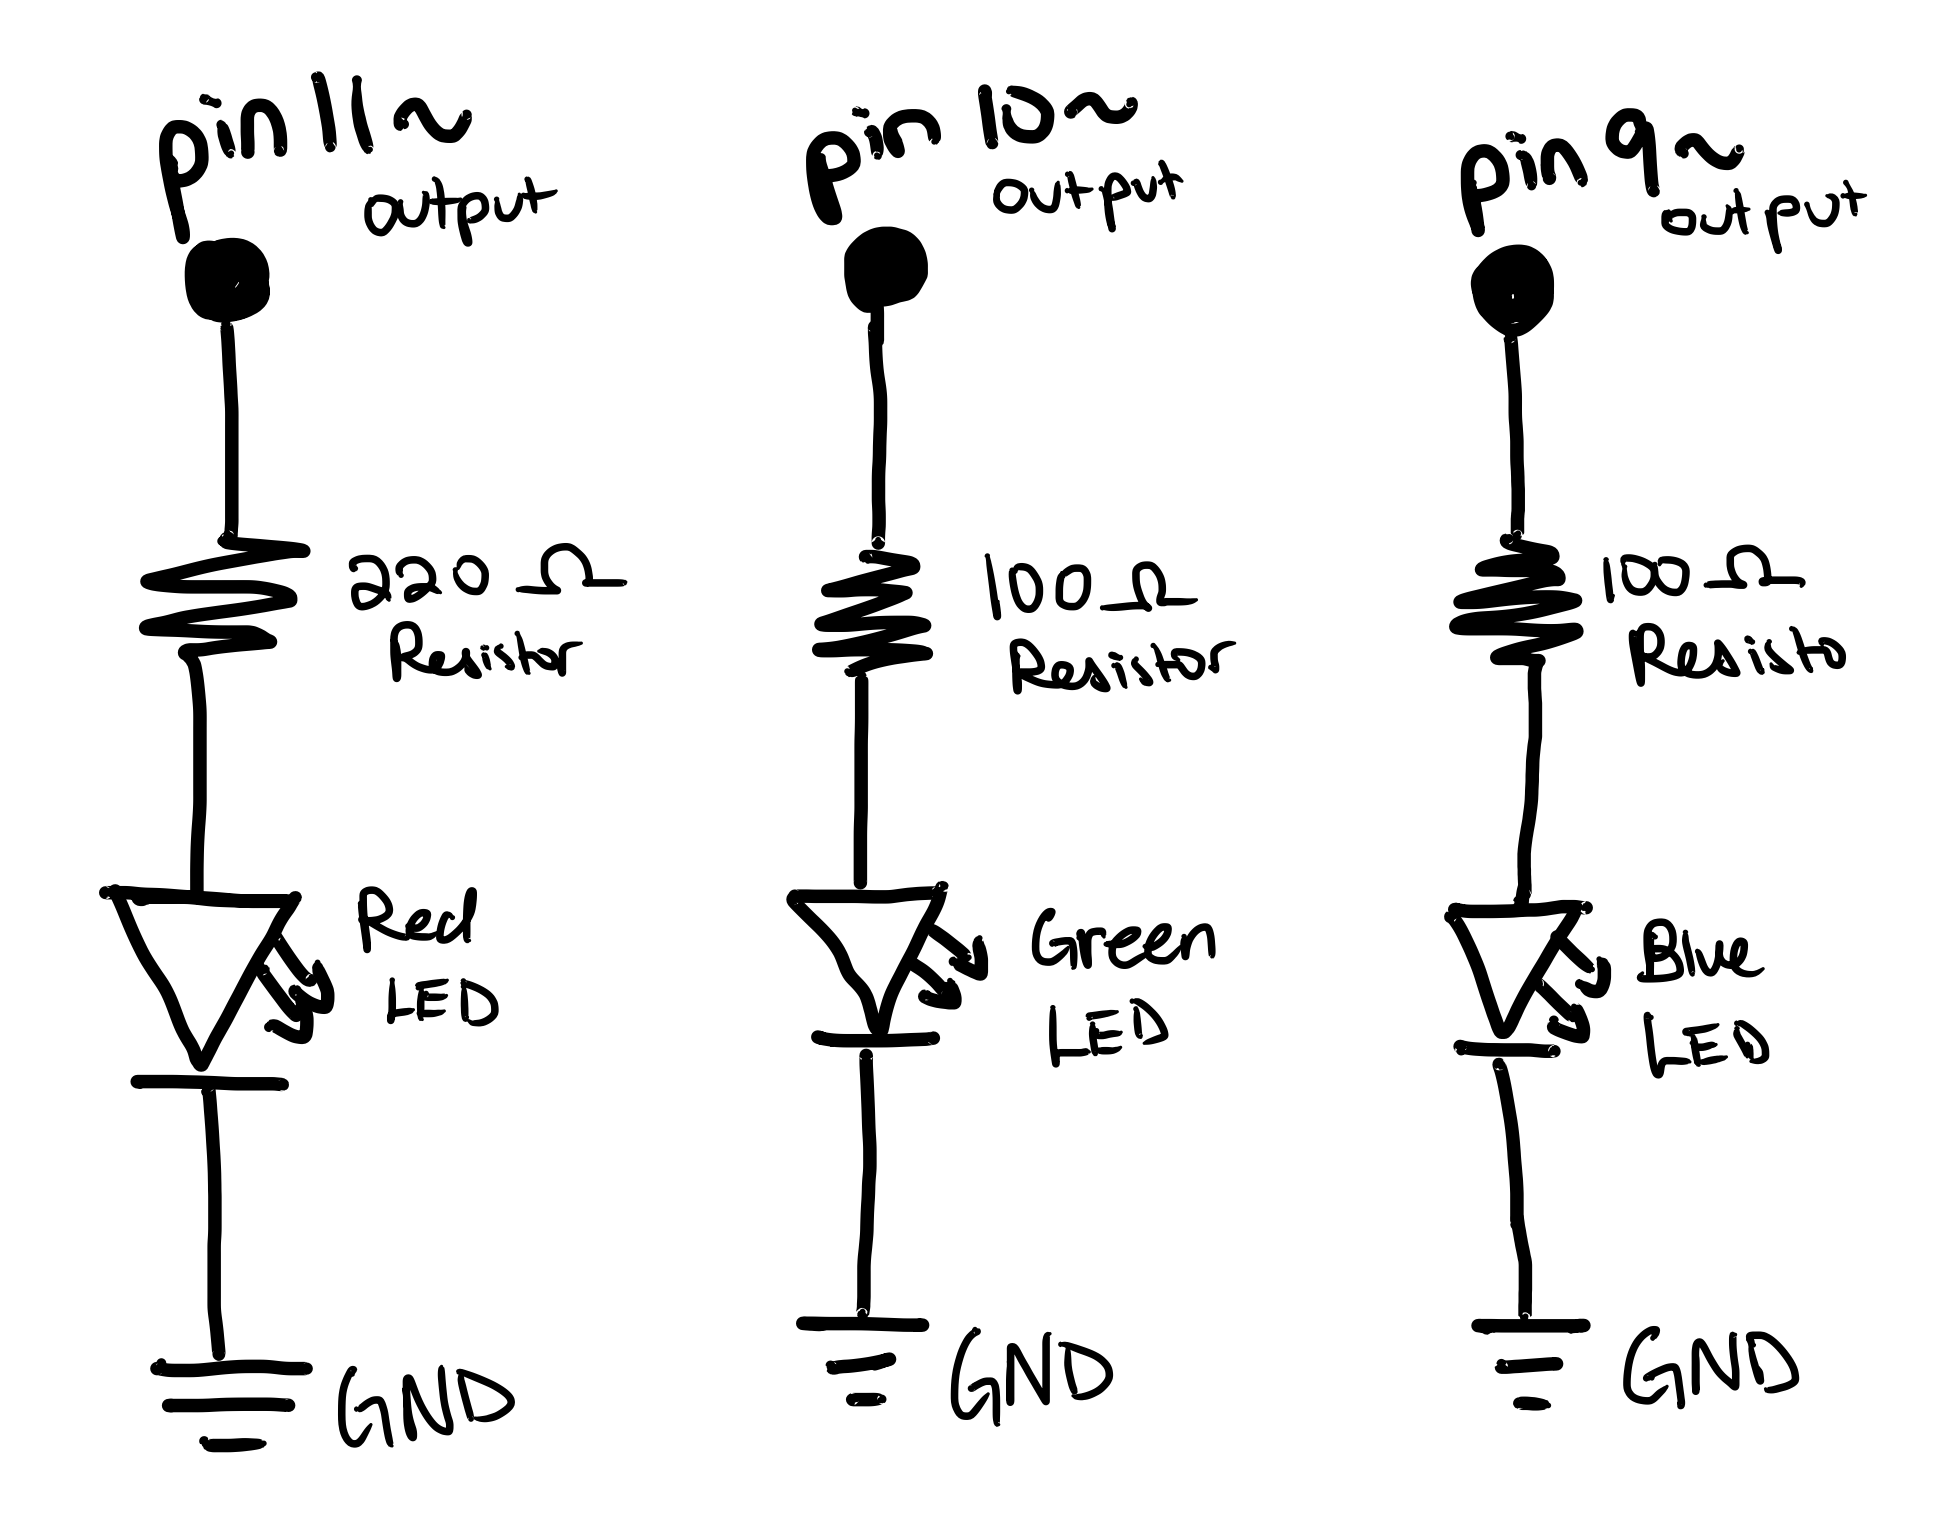 pin 11~
output
220 Ω
Resistor
Red
LED
GND
pin 10~
output
100 Ω
Resistor
Green
LED
GND
pin 9~
output
100 Ω
Resisto
Blue
LED
GND